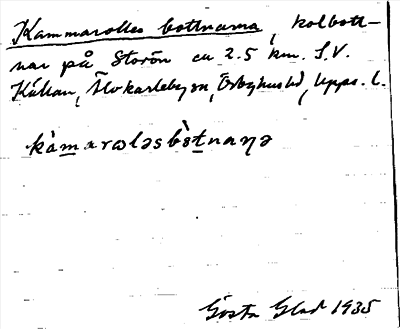 Kammarolles bottnarna, kolbott-
nar på Storön ca 2.5 km. S.V.
Källan, Älvkarleby sn, Örbyhus hd, Upps. l.
kàmarωləsbòtnaŋə
Gösta Glad 1935